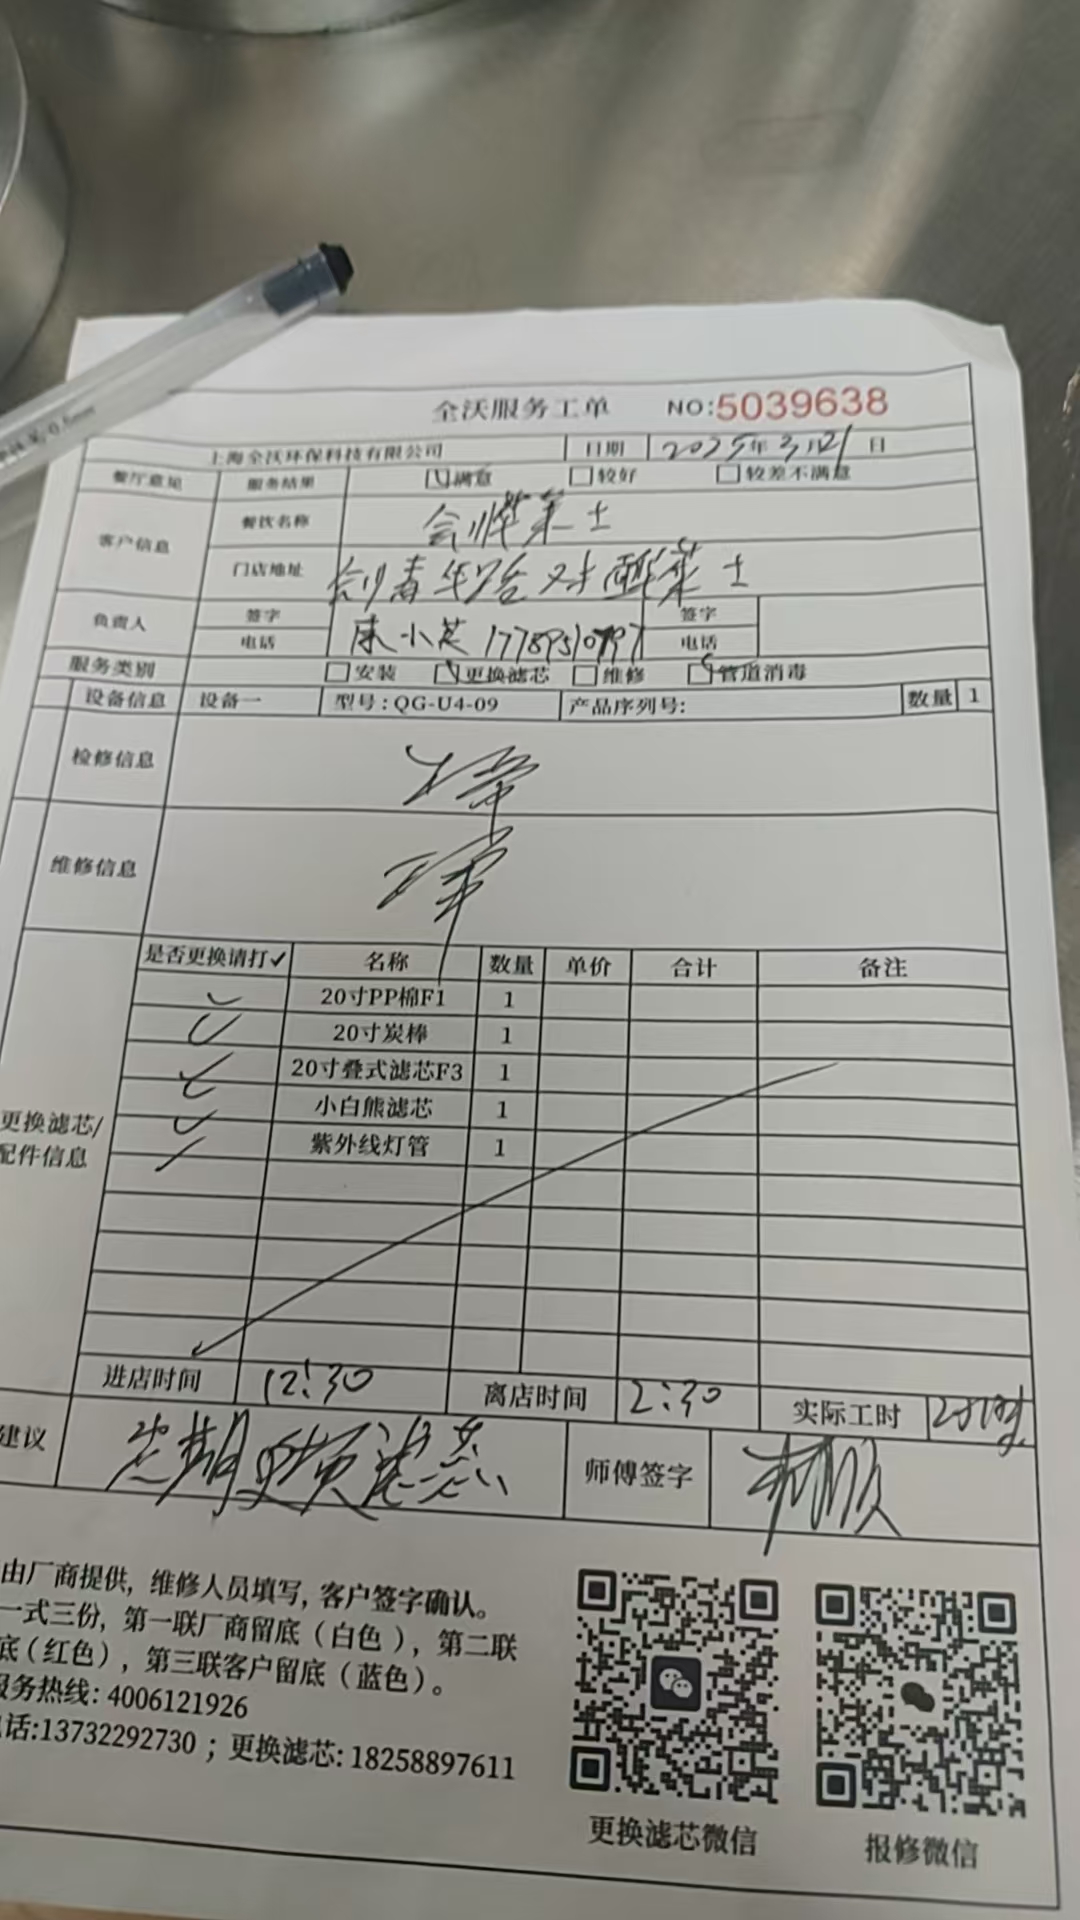 全沃服务工单 NO:5039638
上海全沃环保科技有限公司 日期 2025年3月21日
餐厅意见 服务结果 满意 较好 较差不满意
客户信息 餐饮名称
门店地址
负责人 签字 签字
电话 电话
服务类别 安装 更换滤芯 维修 管道消毒
设备信息 设备一 型号:QG-U4-09 产品序列号: 数量 1
检修信息
维修信息
是否更换请打✓ 名称 数量 单价 合计 备注
20寸PP棉F1 1
20寸炭棒 1
20寸叠式滤芯F3 1
更换滤芯/配件信息 小白熊滤芯 1
紫外线灯管 1
进店时间 12:30 离店时间 2:30 实际工时 2小时
建议 定期更换滤芯 师傅签字
由厂商提供, 维修人员填写, 客户签字确认。
一式三份, 第一联厂商留底(白色), 第二联
底(红色), 第三联客户留底(蓝色)。
服务热线: 4006121926
话:13732292730 ; 更换滤芯: 18258897611
更换滤芯微信 报修微信